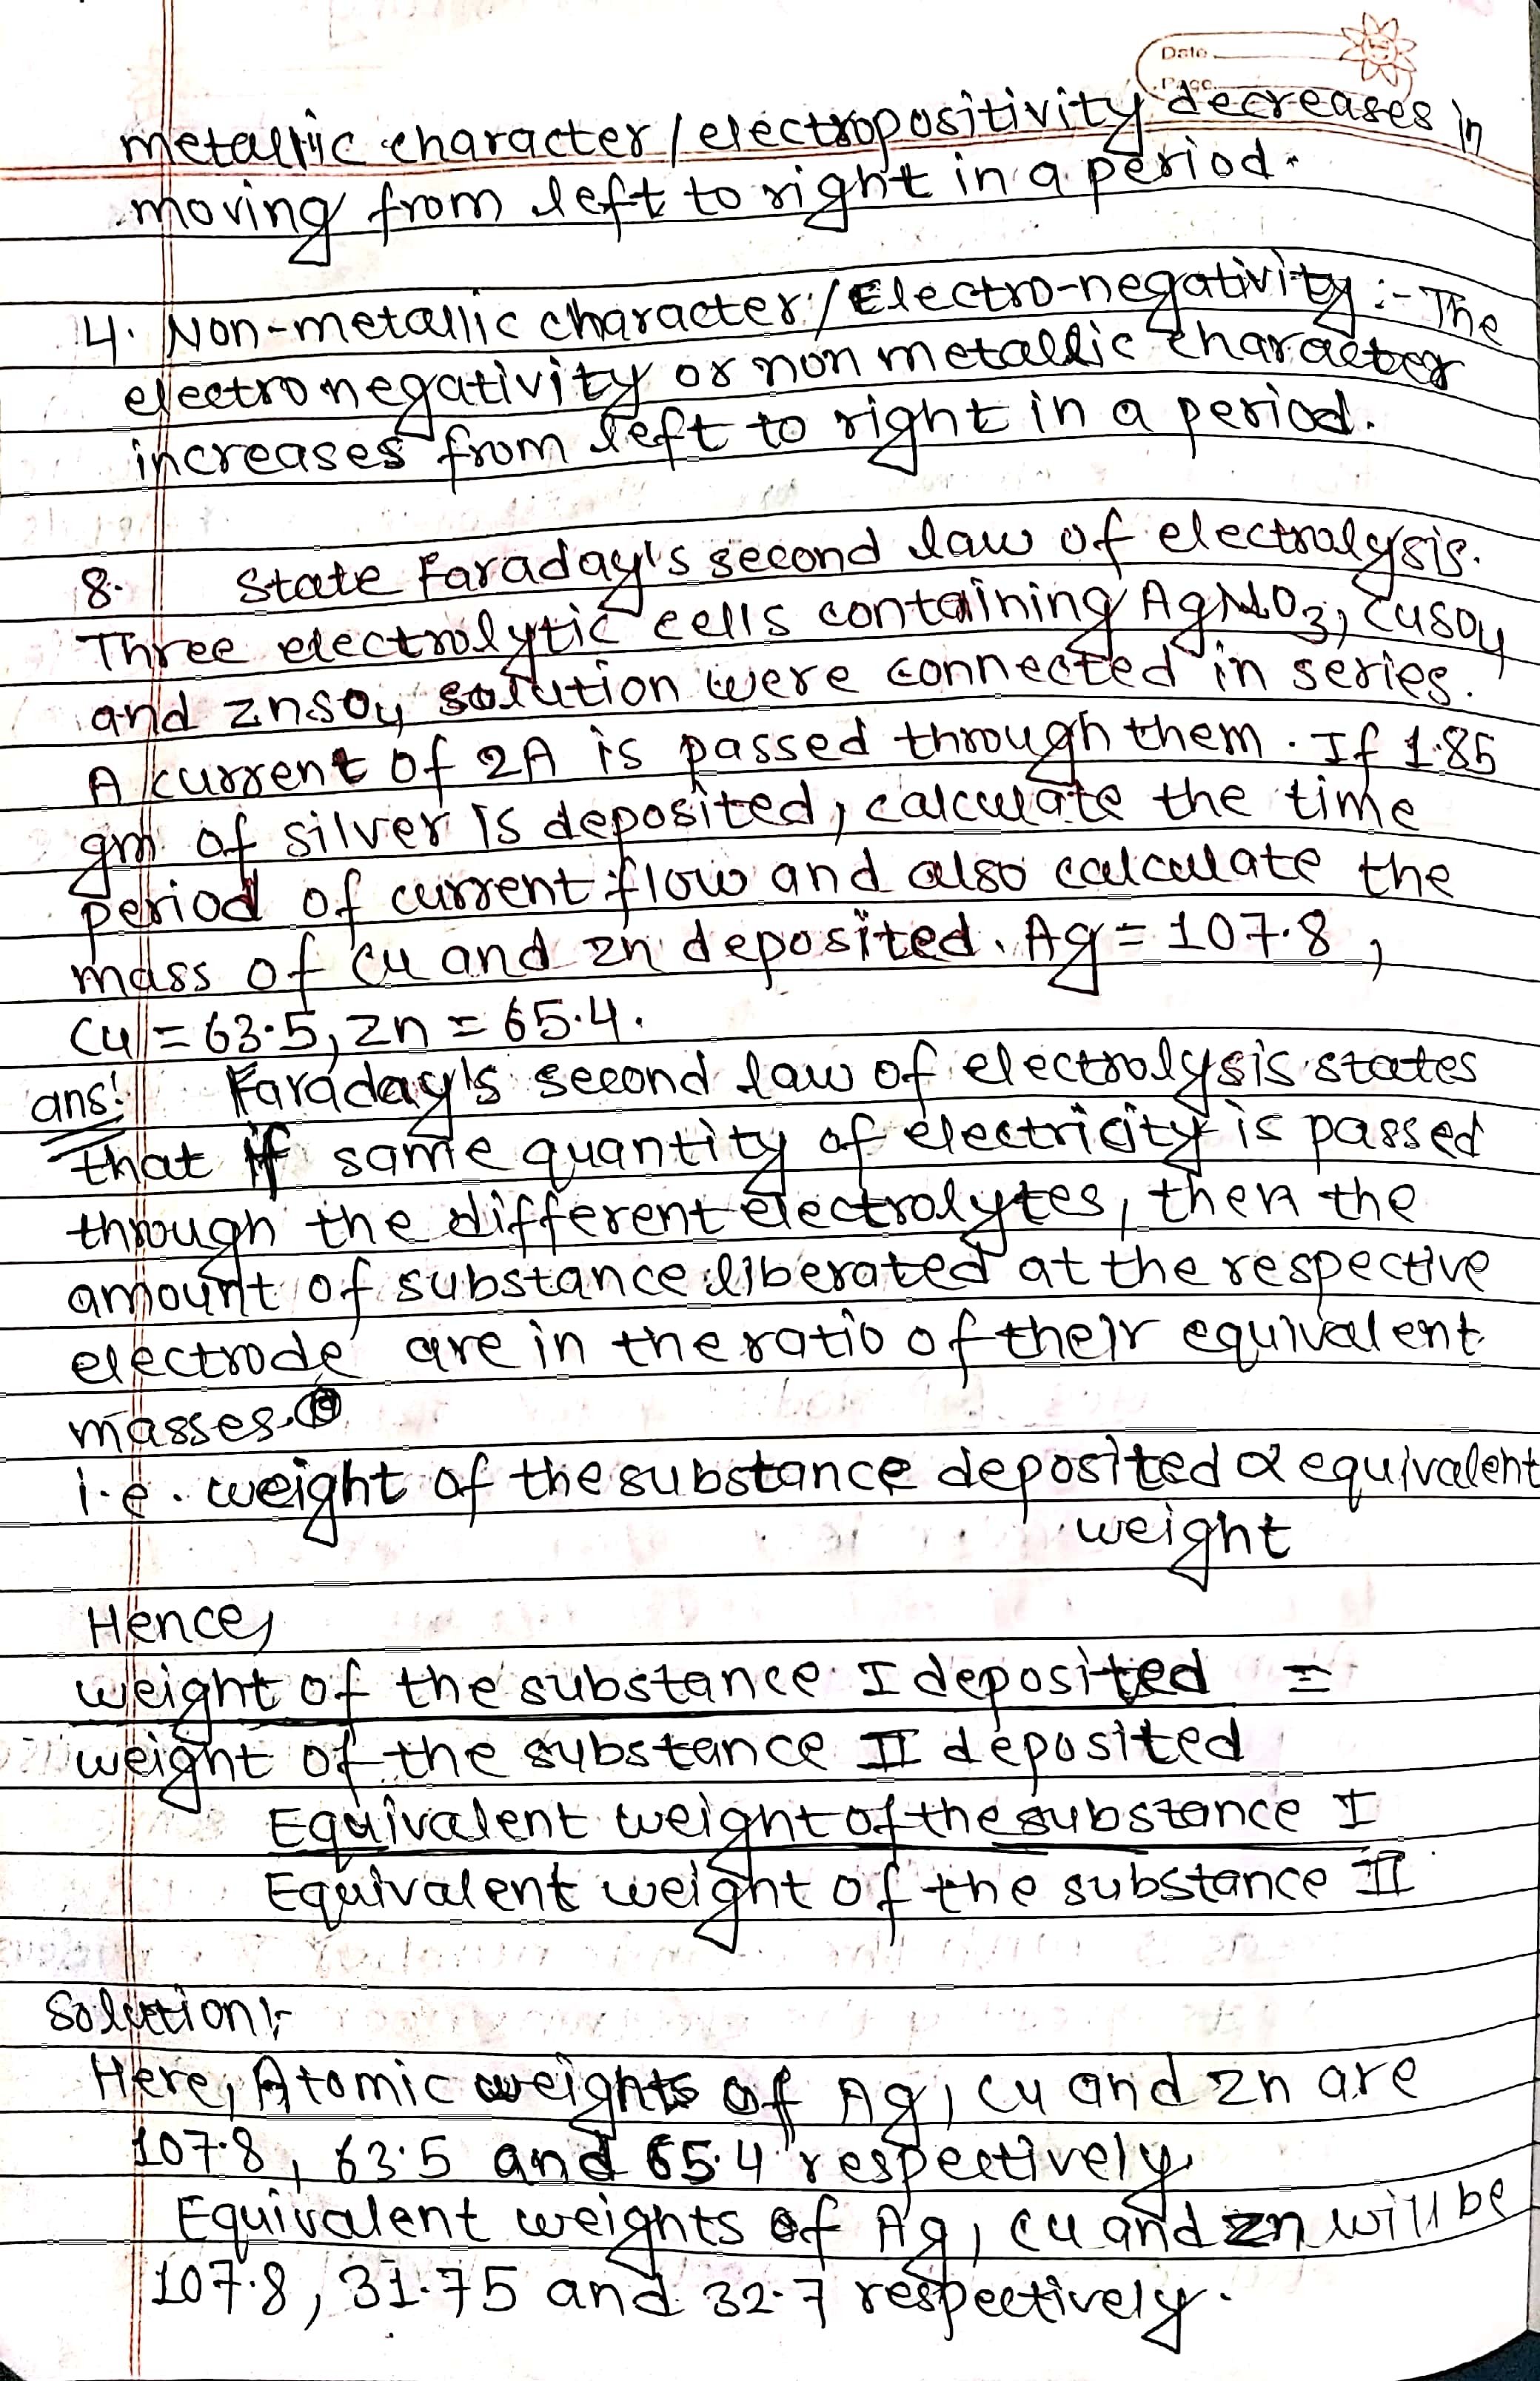 Date
Page
metallic character / electropositivity decreases in
moving from left to right in a period.
4. Non-metallic character / Electro-negativity :- The
electronegativity or non metallic character
increases from left to right in a period.
8. State Faraday's second law of electrolysis.
Three electrolytic cells containing AgNO3, CuSO4
and ZnSO4 solution were connected in series.
A current of 2A is passed through them. If 1.85
gm of silver is deposited, calculate the time
period of current flow and also calculate the
mass of Cu and Zn deposited. Ag = 107.8,
Cu = 63.5, Zn = 65.4.
ans: Faraday's second law of electrolysis states
that if same quantity of electricity is passed
through the different electrolytes, then the
amount of substance liberated at the respective
electrode are in the ratio of their equivalent
masses.
i.e. weight of the substance deposited ∝ equivalent
weight
Hence,
weight of the substance I deposited =
weight of the substance II deposited
Equivalent weight of the substance I
Equivalent weight of the substance II
Solution:-
Here, Atomic weights of Ag, Cu and Zn are
107.8, 63.5 and 65.4 respectively
Equivalent weights of Ag, Cu and Zn will be
107.8, 31.75 and 32.7 respectively.